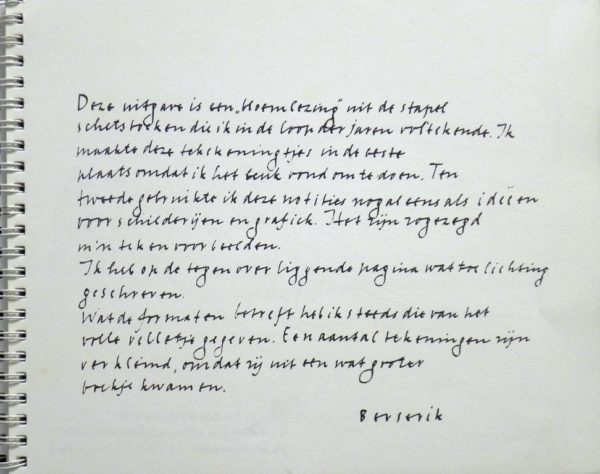 Deze uitgave is een „bloemlezing" uit de stapel
schetsboeken die ik in de loop der jaren voltekende. Ik
maakte deze tekeningetjes in de eerste
plaats omdat ik het leuk vond om te doen. Ten
tweede gebruikte ik deze notities nogal eens als ideeën
voor schilderijen en grafiek. Het zijn zogezegd
m'n tekenvoorbeelden.
Ik heb op de tegenoverliggende pagina wat toelichting
geschreven.
Wat de formaten betreft heb ik steeds die van het
volle velletje gegeven. Een aantal tekeningen zijn
verkleind, omdat zij uit een wat groter
boekje kwamen.
Berserik